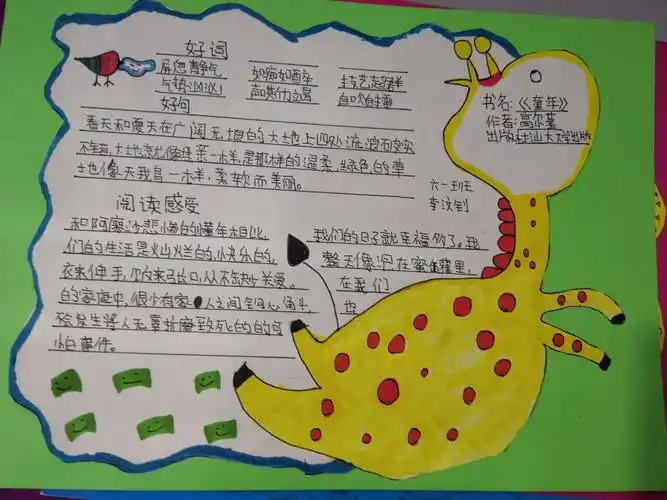 好词
屏息静气 如痴如醉 技艺超群
气势汹汹 声嘶力竭 自吹自擂
好句
春天和夏天在广阔无垠的大地上四处流浪
大地就像母亲一样,是那样的温柔,绿色的草
地像天鹅一样,柔软而美丽。
书名:《童年》
作者:高尔基
出版社:汕大大学出版
六一班
阅读感受
和阿廖沙悲惨的童年相比,
们的生活是灿烂的,快乐的,
衣来伸手,饭来张口,从不缺少关爱。
的家庭中,很少有家 人之间勾心斗角,
会发生将人无辜折磨致死的的可
怕事件。
我们的日子就幸福多了。我
整天像泡在蜜罐里,
在我们
也